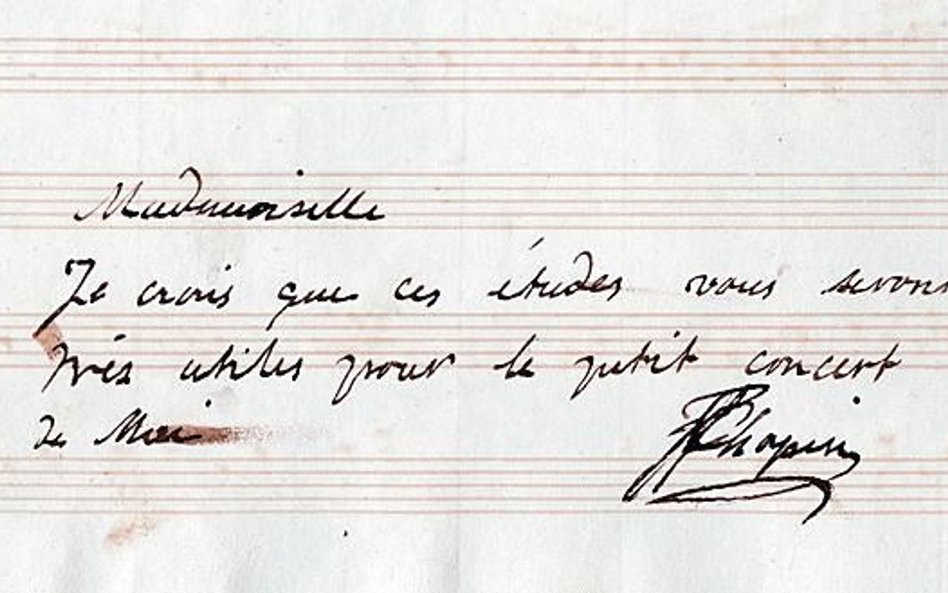 Mademoiselle
Je crois que ces études vous seront
très utiles pour le petit concert
de Mai
FChopin